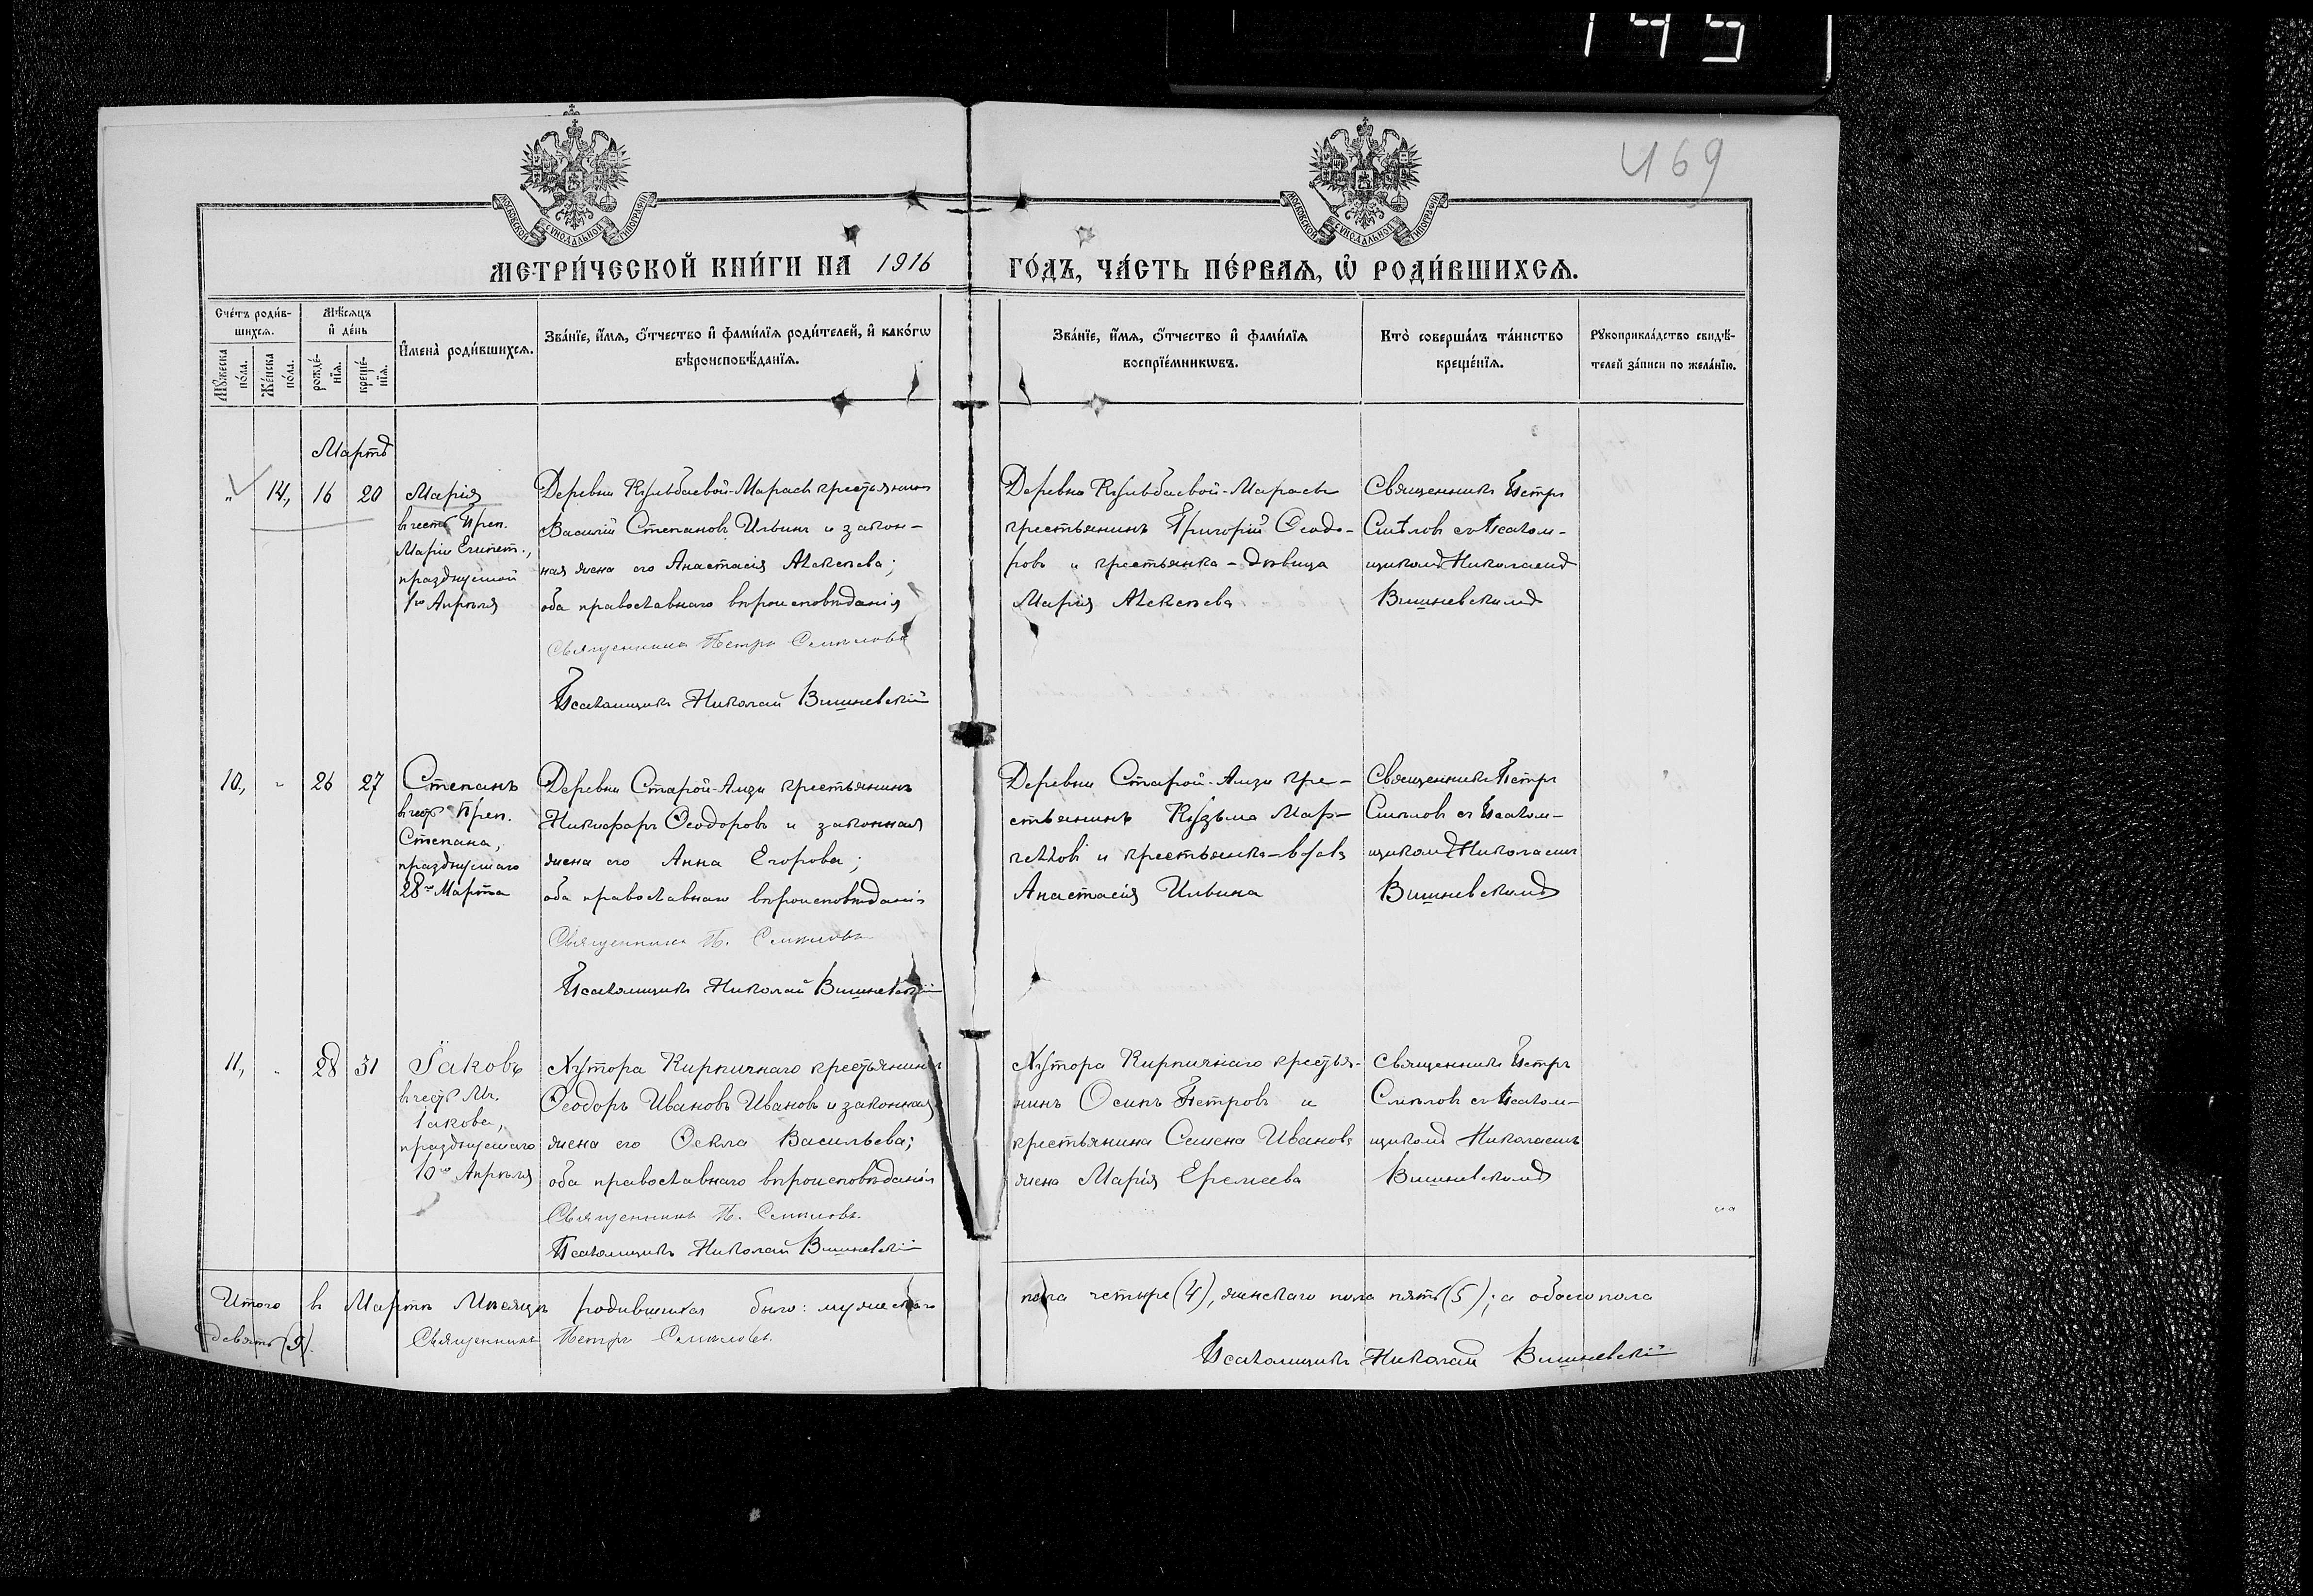 149
469
МОСКОВСКОЙ СѴНОДАЛЬНОЙ ТИПОГРАФІИ
МОСКОВСКОЙ СѴНОДАЛЬНОЙ ТИПОГРАФІИ
МЕТРИ́ЧЕСКОЙ КНИ́ГИ НА 1916 ГО́ДЪ, ЧА́СТЬ ПЕ́РВАѦ, Ѡ҆ РОДИ́ВШИХСѦ.
Сче́тъ роди́в-
шихсѧ.
Мꙋ́жеска
по́ла.
Же́нска
по́ла.
Мѣ́сѧцъ
и҆ де́нь
рожде́-
нїѧ.
креще́-
нїѧ.
И҆мена̀ роди́вшихсѧ.
Зва́нїе, и҆́мѧ, ѻ҆́тчество и҆ фами́лїѧ роди́телей, и҆ како́гѡ
вѣроисповѣ́данїѧ.
Зва́нїе, и҆́мѧ, ѻ҆́тчество и҆ фами́лїѧ
воспрїе́мникѡвъ.
Кто̀ соверша́лъ та́инство
креще́нїѧ.
Рꙋкоприкла́дство свидѣ́-
телей за́писи по жела́нїю.
Мартъ
" 14, 16 20
Марія
въ честь Преп.
Маріи Египет.,
празднуемой
1го Апрѣля
Деревни Кульбаевой-Марасы крестьянинъ
Василій Степановъ Ильинъ и закон-
ная жена его Анастасія Алексѣева;
оба православнаго вѣроисповѣданія
Священникъ Петръ Смѣловъ
Псаломщикъ Николай Вишневскій
Деревни Кульбаевой-Марасы
крестьянинъ Григорій Ѳеодо-
ровъ и крестьянка-дѣвица
Марія Алексѣева
Священникъ Петръ
Смѣловъ съ Псалом-
щикомъ Николаемъ
Вишневскимъ
10, " 26 27
Степанъ
въ честь Преп.
Степана,
празднуемаго
28го Марта
Деревни Старой-Амзи крестьянинъ
Никифоръ Ѳеодоровъ и законная
жена его Анна Егорова;
оба православнаго вѣроисповѣданія
Священникъ П. Смѣловъ
Псаломщикъ Николай Вишневскій
Деревни Старой-Амзи кре-
стьянинъ Кузьма Мар-
келловъ и крестьянка-вдова
Анастасія Ильина
Священникъ Петръ
Смѣловъ съ Псалом-
щикомъ Николаемъ
Вишневскимъ
11, " 28 31
Іаковъ
въ честь Мч.
Іакова,
празднуемаго
10го Апрѣля
Хутора Кирпичнаго крестьянинъ
Ѳеодоръ Ивановъ Ивановъ и законная
жена его Ѳекла Васильева;
оба православнаго вѣроисповѣданія
Священникъ П. Смѣловъ.
Псаломщикъ Николай Вишневскій
Хутора Кирпичнаго крестья-
нинъ Осипъ Петровъ и
крестьянина Семена Иванова
жена Марія Еремеева
Священникъ Петръ
Смѣловъ съ Псалом-
щикомъ Николаемъ
Вишневскимъ
Итого въ Мартѣ Мѣсяцѣ родившихся было: мужескаго пола четыре (4), женскаго пола пять (5); а обоего пола
девять (9).
Священникъ Петръ Смѣловъ.
Псаломщикъ Николай Вишневскій